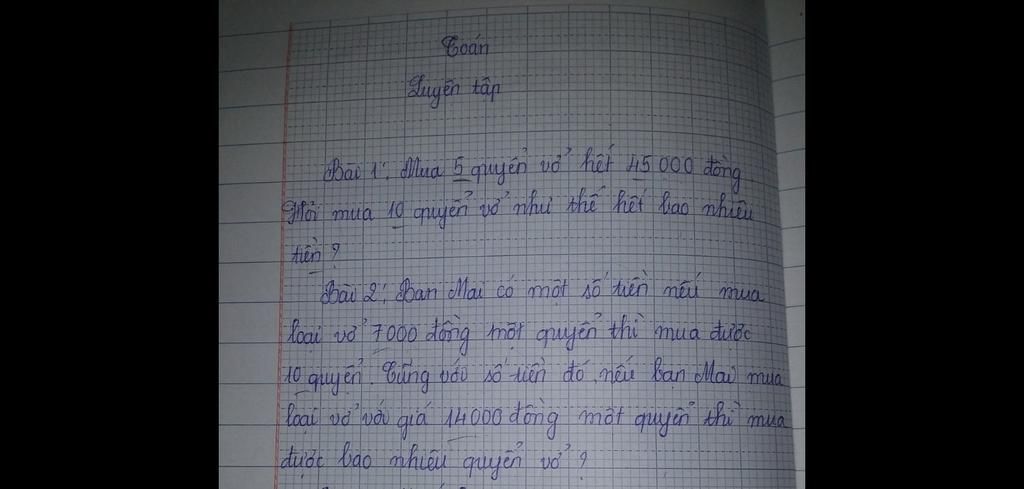 Toán
Luyện tập
Bài 1: Mua 5 quyển vở hết 45 000 đồng
Hỏi mua 10 quyển vở như thế hết bao nhiêu
tiền ?
Bài 2: Bạn Mai có một số tiền nếu mua
loại vở 7000 đồng một quyển thì mua được
10 quyển. Cũng với số tiền đó, nếu bạn Mai mua
loại vở với giá 14000 đồng một quyển thì mua
được bao nhiêu quyển vở ?